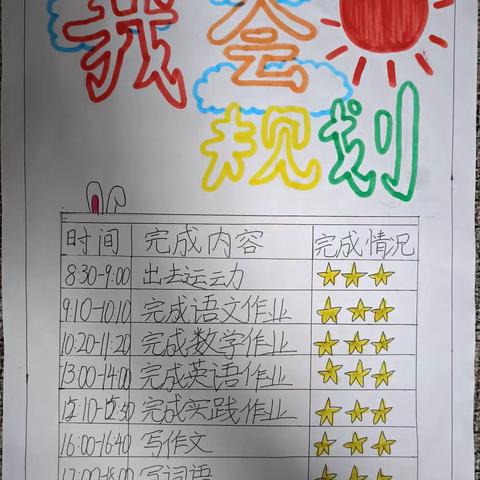 我会
规划
时间 完成内容 完成情况
8:30-9:00 出去运动
9:10-10:10 完成语文作业
10:20-11:20 完成数学作业
13:00-14:00 完成英语作业
完成实践作业
16:00-16:40 写作文
17:00-18:00 写词语